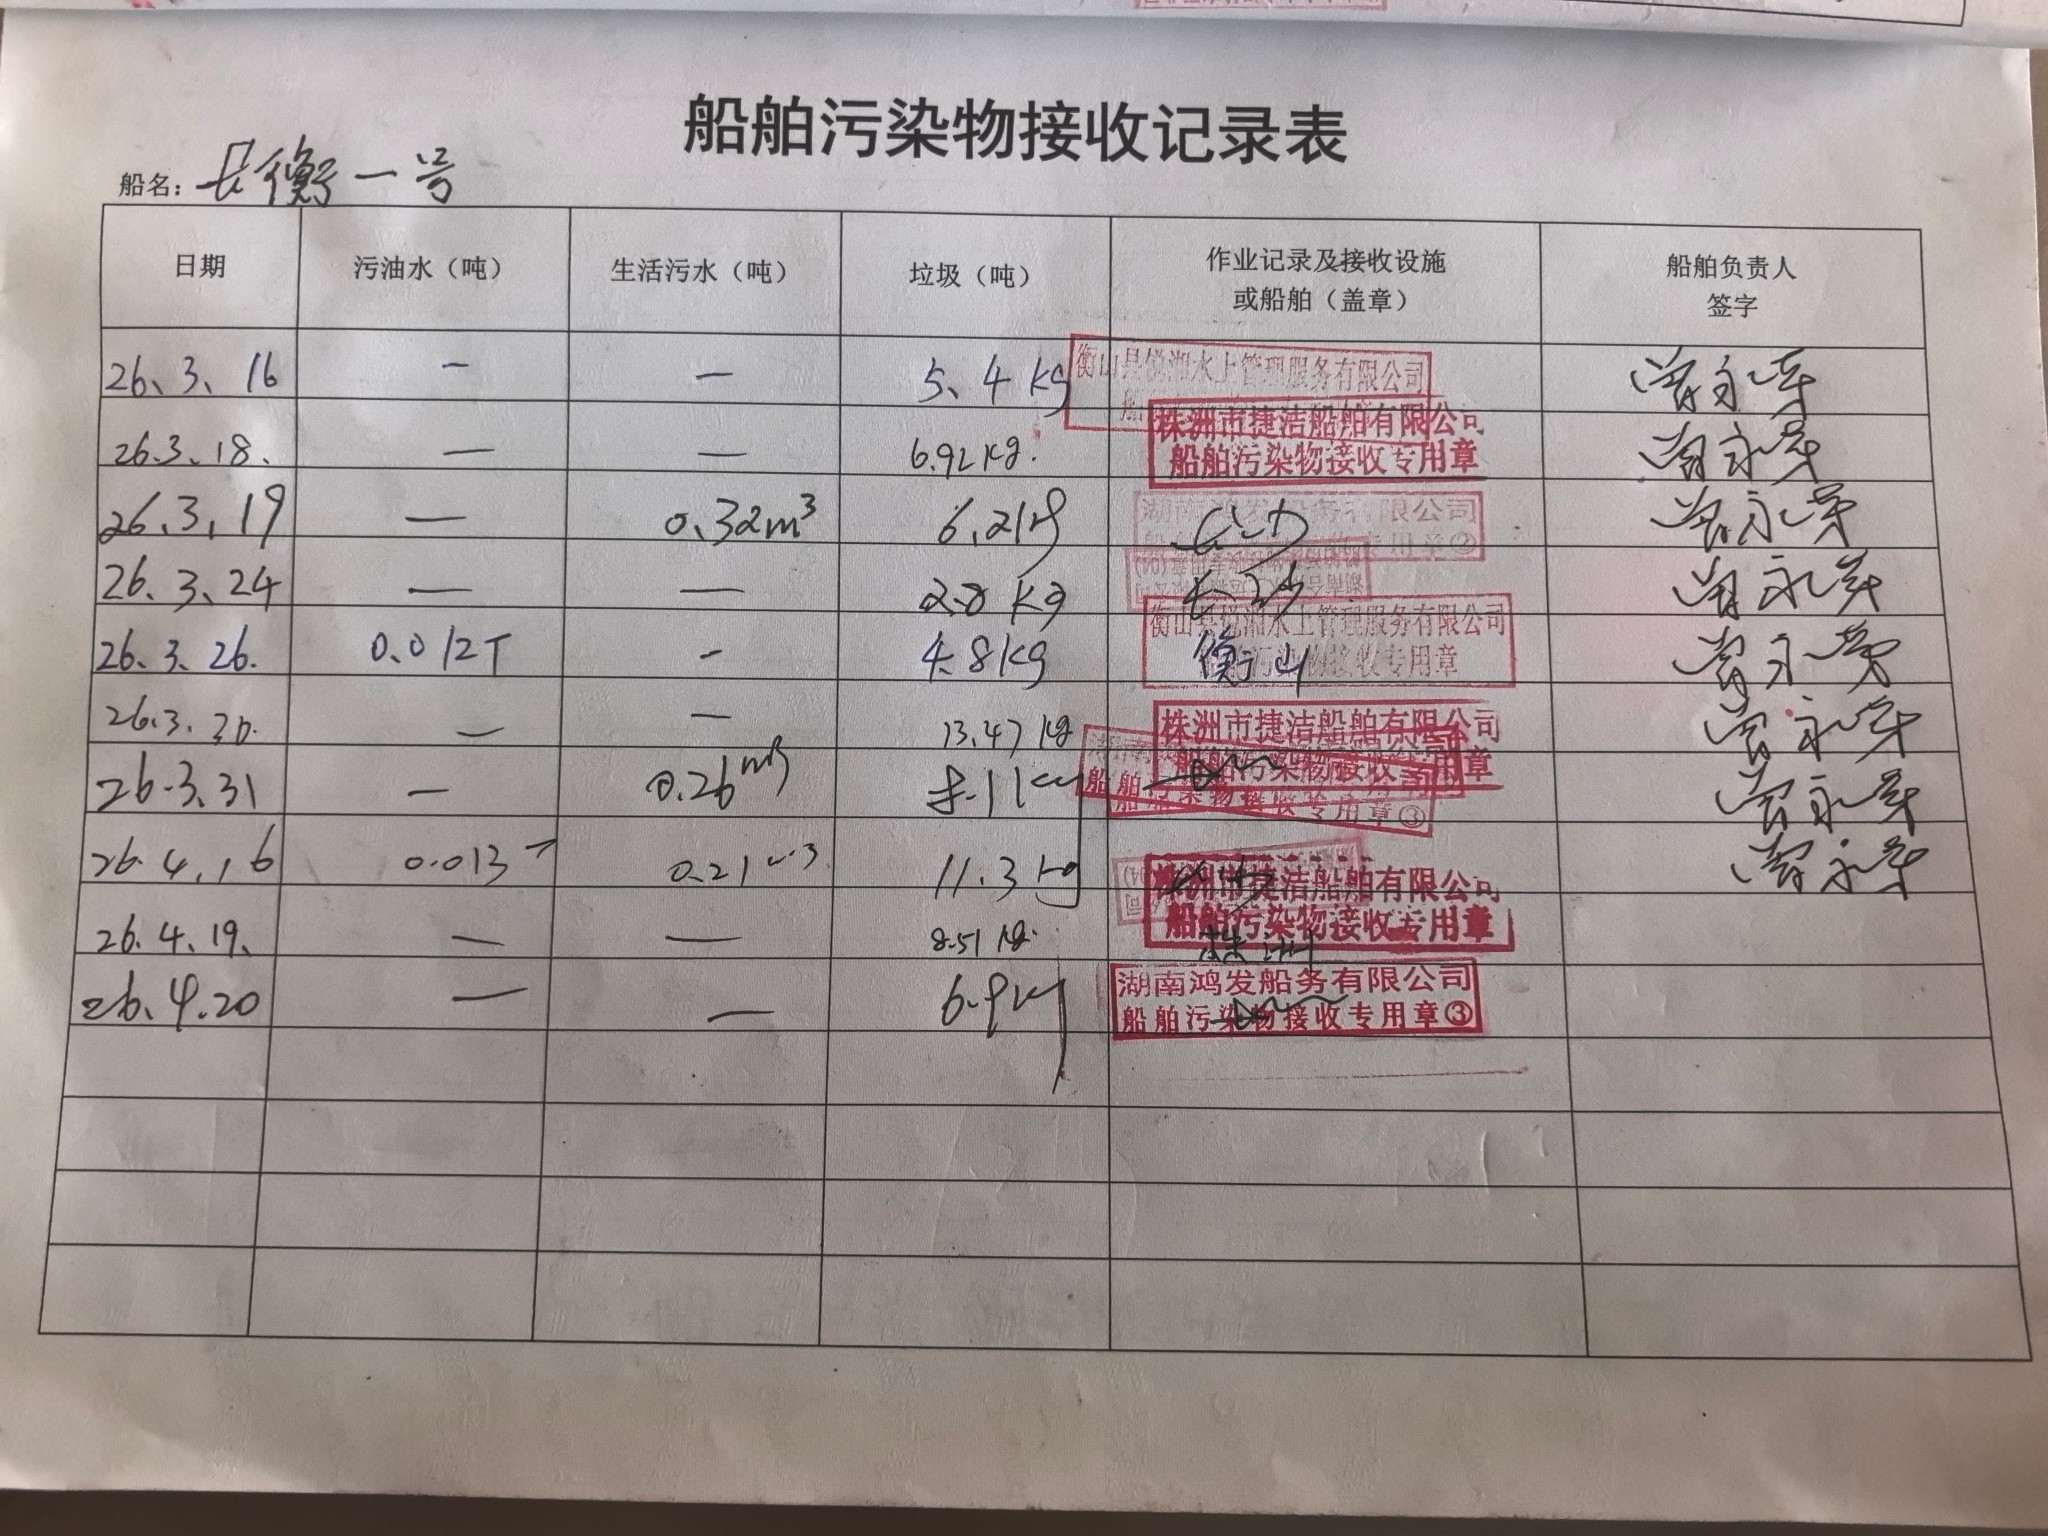 船舶污染物接收记录表
船名：长衡一号
日期 污油水（吨） 生活污水（吨） 垃圾（吨） 作业记录及接收设施或船舶（盖章） 船舶负责人签字
26.3.16 — — 5.4kg 衡山县悦湘水上管理服务有限公司
26.3.18. — — 6.92kg. 株洲市捷洁船舶有限公司 船舶污染物接收专用章
26.3.19 — 0.32m³ 6.2kg 湖南鸿发船务有限公司
26.3.24 — — 2.8kg 长沙
26.3.26. 0.012T - 4.8kg 衡山县悦湘水上管理服务有限公司 船舶污染物接收专用章 衡山
26.3.30. — — 13.47kg 株洲市捷洁船舶有限公司 船舶污染物接收专用章
26.3.31 — 0.26m³ 船舶污染物接收专用章③
26.4.16 0.013T 0.21m³ 11.3kg
26.4.19. — — 8.51kg. 株洲市捷洁船舶有限公司 船舶污染物接收专用章 株洲
26.4.20 — — 6.9kg 湖南鸿发船务有限公司 船舶污染物接收专用章③